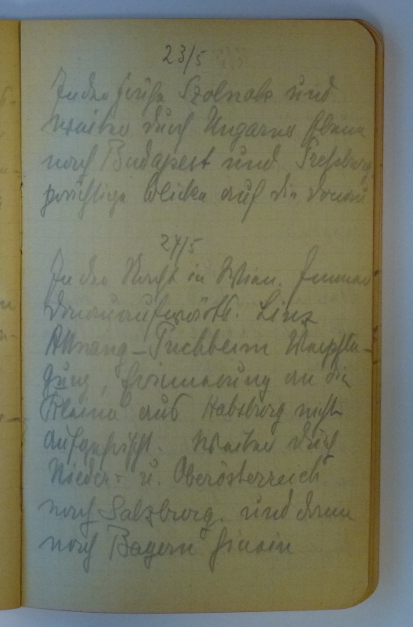 23/5
In der Frühe Szolnok und
weiter durch Ungarns Ebene
nach Budapest und Preßburg
prächtige Blicke auf die Donau
24/5
In der Nacht in Wien. Immer
donauaufwärts. Linz
Attnang-Puchheim
Erinnerung an die
Kleine aus Habsburg nicht
aufgefrischt. Weiter durch
Nieder- u. Oberösterreich
nach Salzburg. und dann
nach Bayern hinein